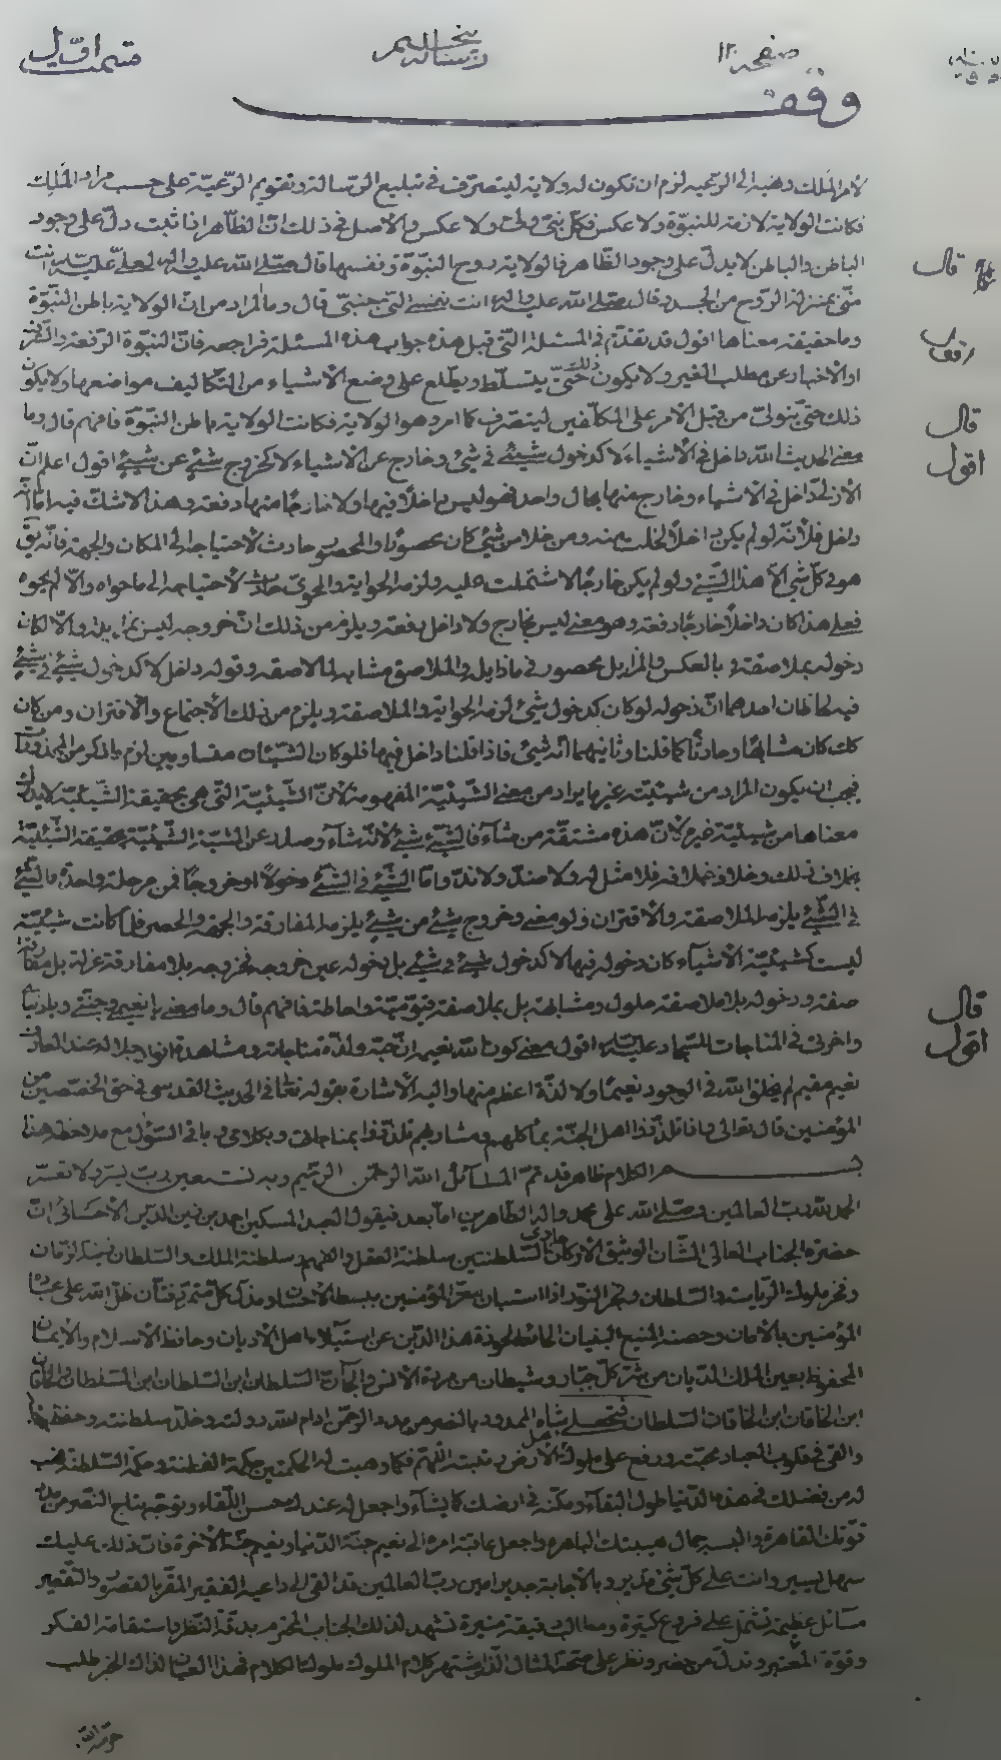 صفحه ١٢٠
قسمت اوّل
وقف
لأمر الملك وهبه الى الرعيه لزم ان تكون له ولاية ليتصرّف في تبليغ الرسالة وتقويم الرّعيّة على حسب مراد الملك
فكانت الولاية لازمة للنبوّة ولا عكس فكلّ نبيّ ولىّ ولا عكس والأصل في ذلك انّ الظّاهر اذا ثبت دلّ على وجود
الباطن والباطن لا يدلّ على وجود الظّاهر فالولاية روح النبوّة ونفسها قال صلّى الله عليه وآله لعلىّ عليه السلام انت
قال
منّى بمنزلة الرّوح من الجسد وقال صلّى الله عليه وآله انت نفسى التى بين جنبىّ قال وما المراد من انّ الولاية باطن النّبوّة
وما حقيقة معناها اقول قد تقدّم في المسئلة الّتى قبل هذه جواب هذه المسئلة فراجعه فانّ النبوّة الرّفعة
او الأخبار عن مطلب الغير ولا يكون ذلك حتىّ يتسلّط ويطّلع على وضع الأشياء من التّكاليف مواضعها ولا يكون
ذلك حتىّ يتولىّ من قبل الأمر على المكلّفين ليتصرّف كما امر وهو الولاية فكانت الولاية باطن النبوّة فافهم قال وما
قال
معنى الحديث الله داخل في الأشياء لا كدخول شيئ في شئ وخارج عن الأشياء لا كخروج شيئ عن شيئ اقول اعلم انّ
اقول
الأزلىّ داخل في الأشياء وخارج منها بحال واحد فهو ليس داخلاً فيها ولا خارجًا منها دفعة وهذا لا شكّ فيه امّا انّه
داخل فلأنّه لو لم يكن داخلاً لخلت منه ومن خلا من شئ كان محصورًا والمحصور حادث لأحتياجه الى المكان والجهة فانّه يق
هو فى كلّ شئ الاّ هذا الشّئ ولو لم يكن خارجًا لاشتملت عليه ولزمه الحواية والمحوىّ حادث لأحتياجه الى ما حواه والاّ لم يحوه
فعلى هذا كان داخلاً خارجًا دفعة وهو معنى ليس بخارج ولا داخل دفعة ويلزم من ذلك انّ خروجه ليس بمزايلة والاّ لكان
دخوله بملاصقة وبالعكس والمزايل محصور فى ماذا يل والملاصق مشابه لما لاصقه وقوله داخل لا كدخول شيئ فى شيئ
فيه لحاظان احدهما انّ دخوله لو كان كدخول شئ لزمه الحواية والملاصقة ويلزم من ذلك الأجتماع والأقتران ومن كان
كك كان مشابهًا وحادثًا كما قلنا وثانيهما انّه شئ فاذا قلنا داخل فيها فلو كان الشّيئان متساويين لزم ما ذكر من المحذورات
فيجب ان يكون المراد من شيئيّته غير ما يراد من معنى الشّيئيّة المفهومة لأنّ الشّيئيّة الّتى هى بحقيقة الشّيئيّة لا يدرك
معناها من شيئيّة غيره لأنّ هذه مشتقّة من شاء فالشّيئ شيئ لأنّه شاء وصدر عن المشيّة الشّيئيّة بحقيقة الشّيئيّة
بخلاف ذلك وخلاف خلافه فلا مثل له ولا ضدّ ولا ندّ وامّا الشّيئ فى الشّيئ دخولاً او خروجًا فمن مرحلة واحدة فالشّيئ
فى الشّيئ يلزمه الملاصقة والأقتران ولو معنى وخروج شيئ من شيئ يلزمه المفارقة والجهة والحصر فلمّا كانت شيئيّته
ليست كشيئيّة الأشياء كان دخوله فيها لا كدخول شيئ فى شيئ بل دخوله عين خروجه فخروجه بلا مفارقة عزلة بل مفارقة
صفة ودخوله بلا ملاصقة حلول ومشابهة بل بملاصقة قيّوميّة واحاطة فافهم قال وما معنى يا نعيمى وجنّتى ويا دنياى
قال
وآخرتى فى المناجات للسّجاد عليه السلام اقول معنى كون الله نعيمه انّ حبّه ولذّة مناجاته ومشاهدة انوار جلاله عند العارف
اقول
نعيم مقيم لم يخلق الله فى الوجود نعيمًا ولا لذّة اعظم منها واليه الأشارة بقوله تعالى فى الحديث القدسى فى حقّ المخصّصين من
المؤمنين قال تعالى واذا تلذّذ اهل الجنّة بمأكلهم ومشاربهم تلذّذوا بمناجاتى وبكلامى وباقى السّؤل مع ملاحظة هذا
الكلام ظاهر قد تمّ المسائل
بسم الله الرحمن الرّحيم وبه نستعين ربّ يسّر ولا تعسّر
الحمد لله ربّ العالمين وصلّى الله على محمد وآله الطّاهرين امّا بعد فيقول العبد المسكين احمد بن زين الدّين الأحسائى انّ
حضرة الجناب العالى الشّان الوثيق الأركان حاوى السّلطنتين سلطنة العقل والفهم وسلطنة الملك والسّلطان نتيجة الزّمان
وفخر ملوك الرّياسة والسّلطان اذا استبان معزّ المؤمنين ببسط الأحسان ومذلّ كلّ متمرّد فتّان ظلّ الله على عباده
المؤمنين بالأمان وحصنه المنيع البنيان الحافظ لحوزة هذا الدّين عن استيلاء اهل الأديان وحافظ الأسلام والأيمان
المحفوظ بعين الملك الدّيان من شرّ كلّ جبّار وشيطان من مردة الأنس والجآنّ السّلطان ابن السّلطان ابن السّلطان والخاقان
ابن الخاقان ابن الخاقان السّلطان فتحعلى شاه الممدود بالنصر من مدد الرّحمن ادام الله دولته وخلّد سلطنته وحفظ
والقى فى قلوب العباد محبّته ورفع على اهل ملوك الأرض رتبته اللّهمّ فكما وهبت له الحكمتين حكمة الفطنة وحكمة السّلطنة فهب
له من فضلك فى هذه الدّنيا طول البقاء ومكّنه فى ارضك كما يشاء واجعل له عندك محسن اللّقاء وتوّجه بتاج النّصر من
قوّتك القاهرة والبسه جمال هيبتك الباهرة واجعل عاقبة امره الى نعيم جنّة الدّنيا ونعيم جنّة الآخرة فانّ ذلك عليك
سهل يسير وانت على كلّ شئ قدير وبالأجابة جدير امين ربّ العالمين قد القى الى داعيه الفقير المقرّ بالقصور والتّقصير
مسائل عظيمة تشتمل على فروع كثيرة ومطالب دقيقة منيرة تشهد لذلك الجناب المحترم بدقّة النّظر واستقامة الفكر
وقوّة المعتبر وتدلّ من حضر ونظر على صحّة المثال الّذى اشتهر كلام الملوك ملوك الكلام فهذا العيان لذاك الخبر طلب